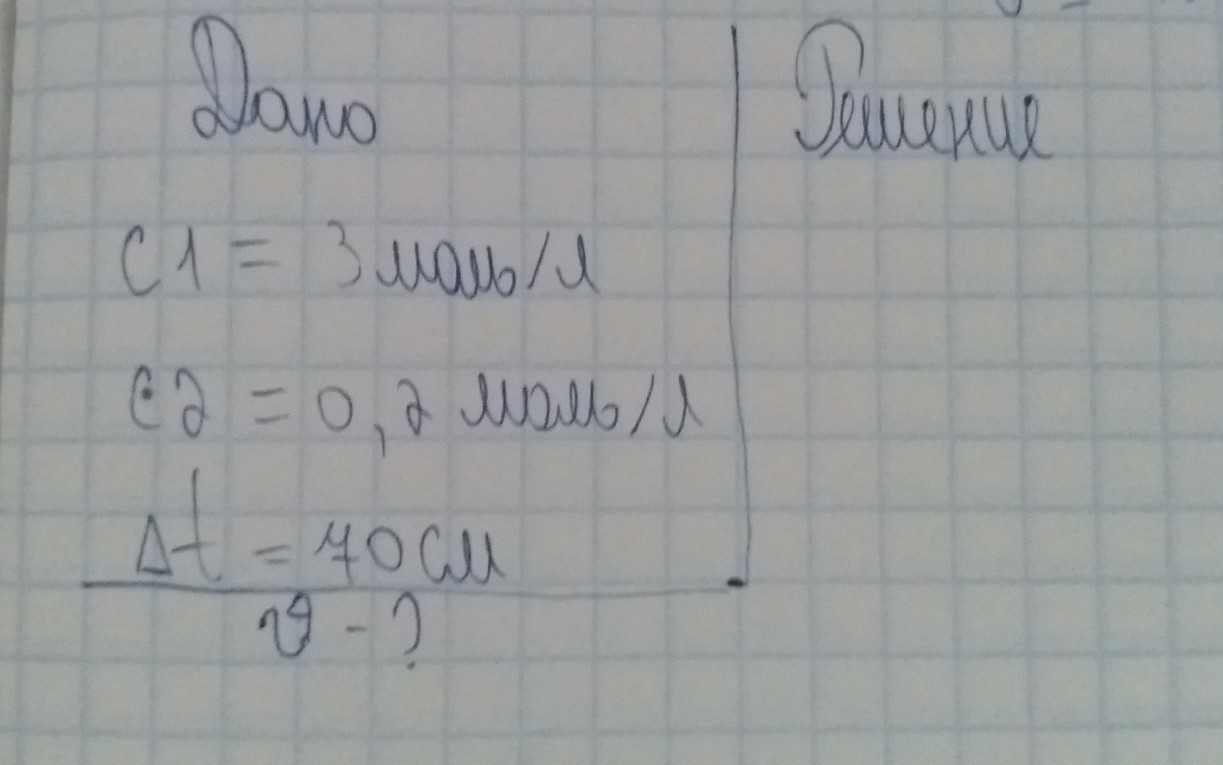 Дано
Решение
C1 = 3 моль/л
C2 = 0,2 моль/л
Δt = 70 см
υ - ?